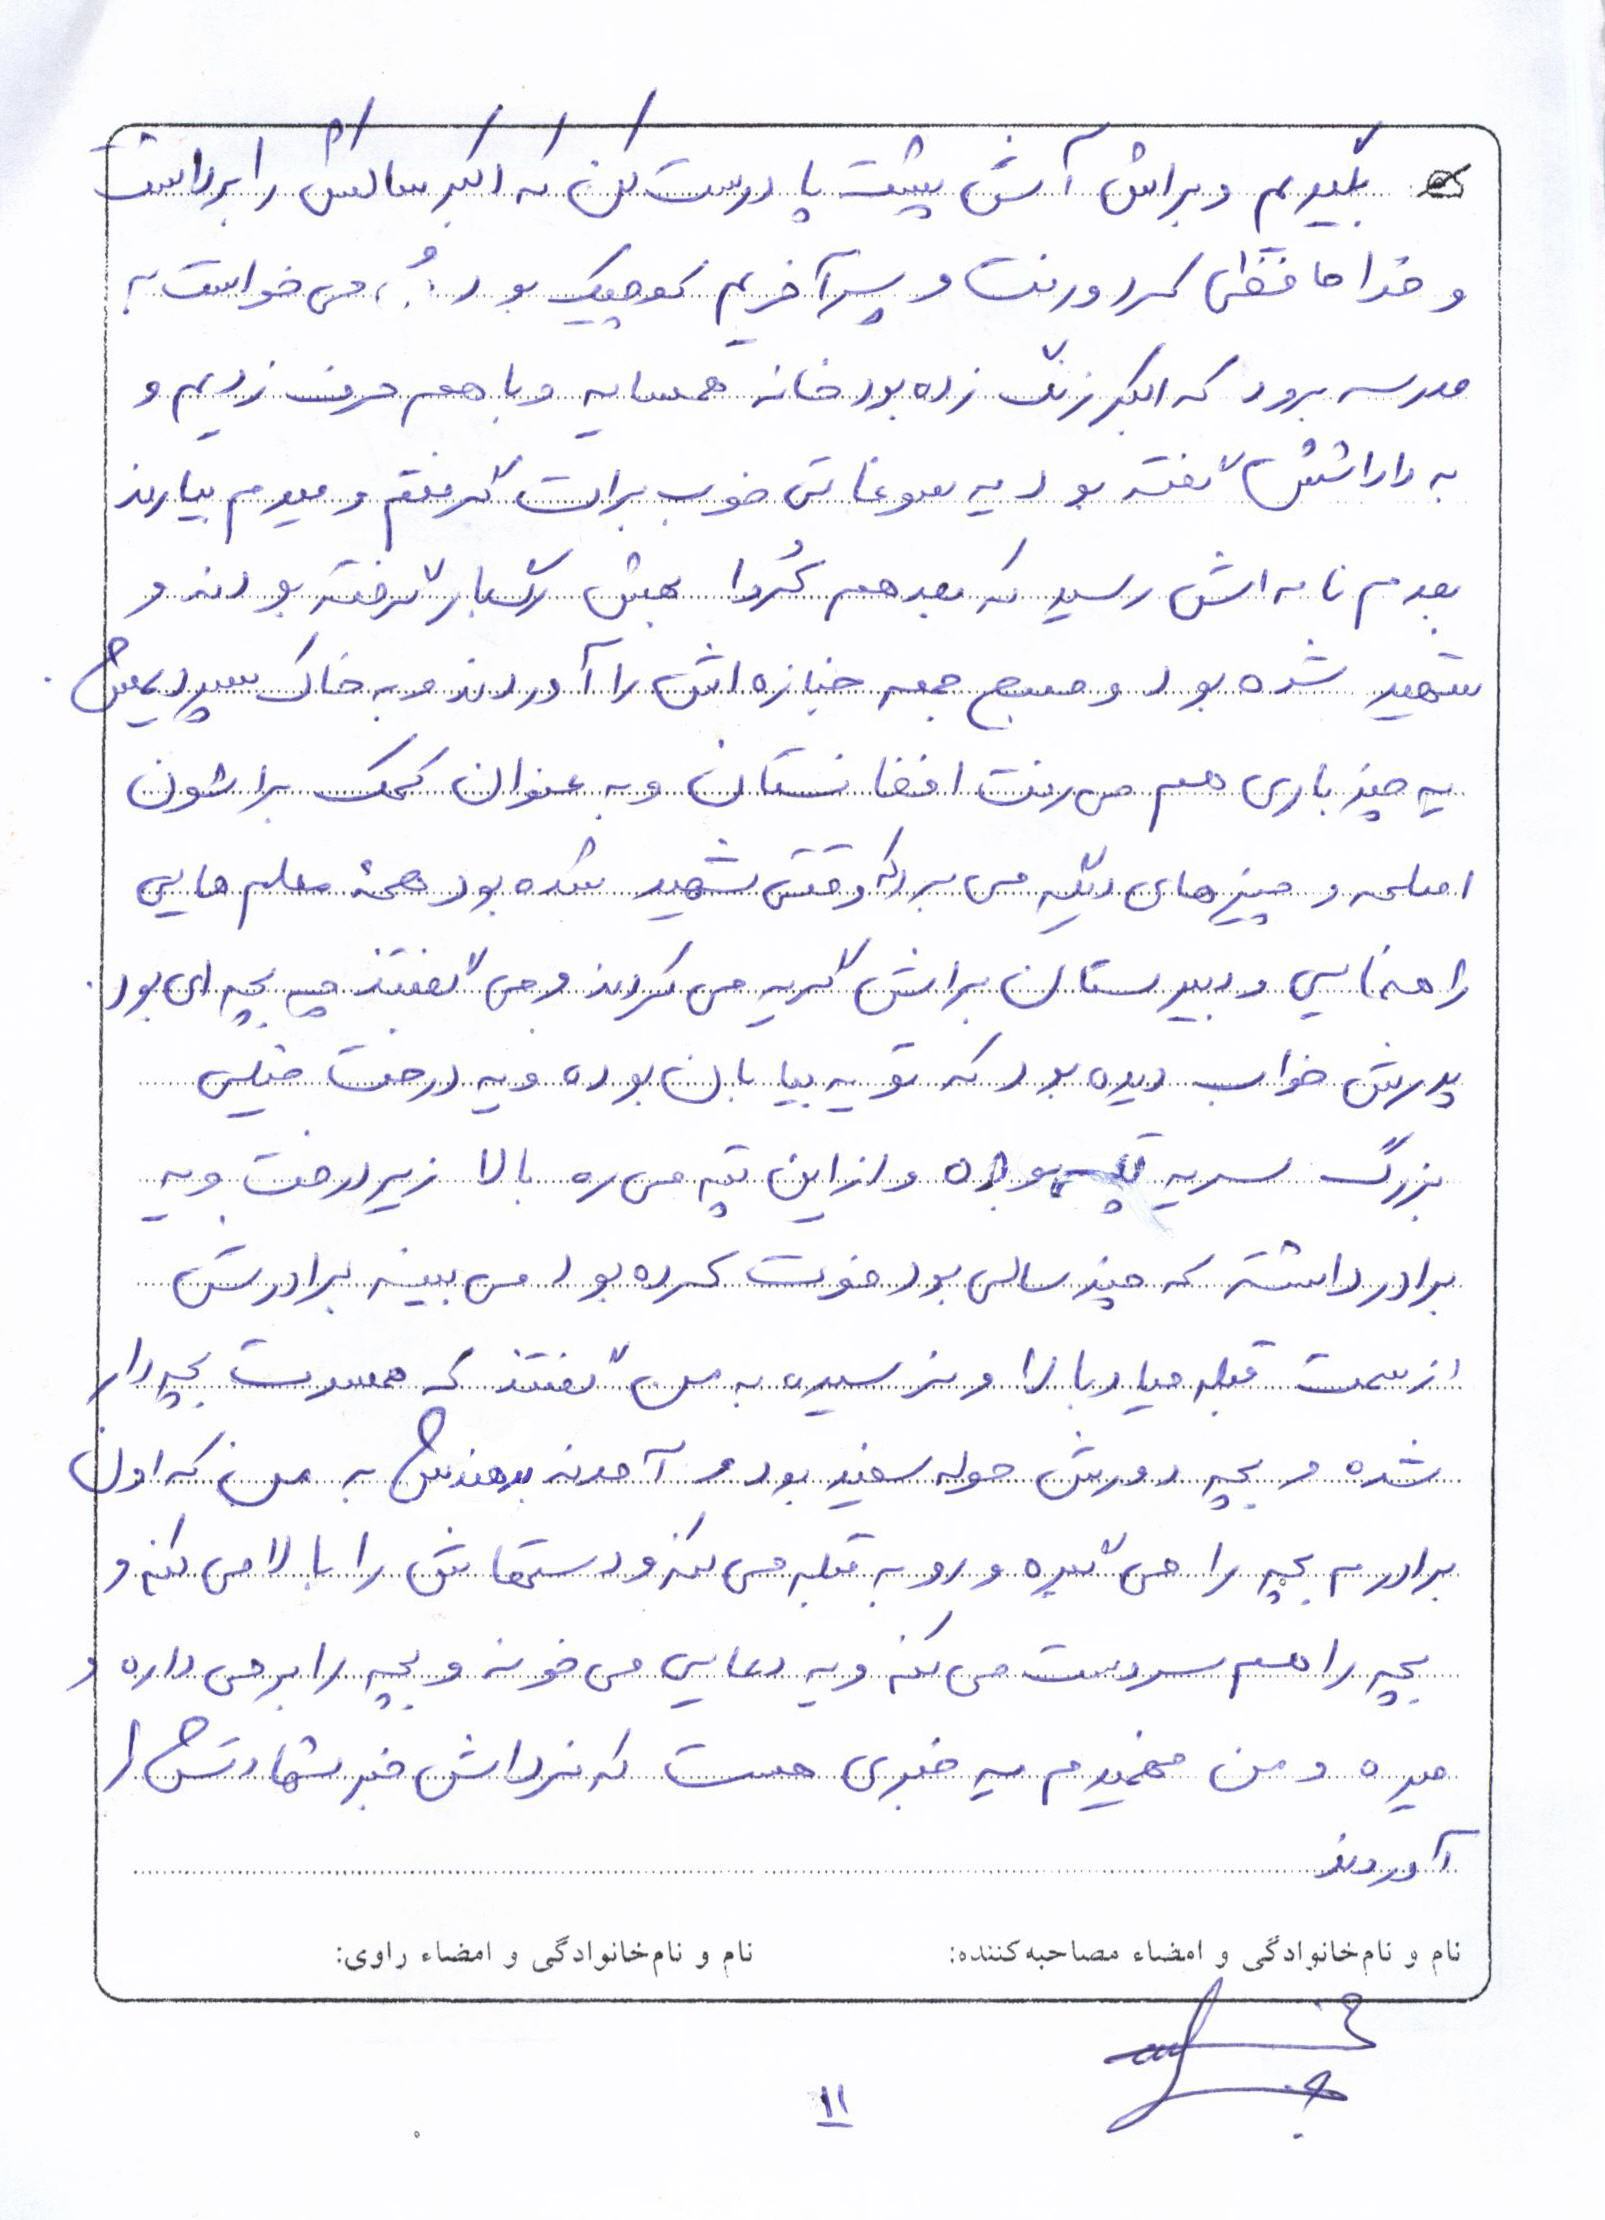 بگیریم و براش آش پشت پا درست کن که اکبر ساکش را برداشت
و خداحافظی کرد و رفت و پسر آخریم کوچیک بود می خواست به
مدرسه برود که اکبر زنگ زده بود خانه همسایه و با هم حرف زدیم و
به داداشش گفته بود یه سوغاتی خوب برات گرفتم و میدم بیارند
بعدم نامه اش رسید که بعد هم کُردا بهش رگبار گرفته بودند و
شهید شده بود و صبح جمعه جنازه اش را آوردند و به خاک سپردیمش.
یه چند باری هم می رفت افغانستان و به عنوان کمک براشون
اسلحه و چیزهای دیگه می برد که وقتی شهید شده بود همهٔ معلم هایی
راهنمایی و دبیرستان براش گریه می کردند و می گفتند چه بچه ای بود.
پدرش خواب دیده بود که تو یه بیابان بوده و یه درخت خیلی
بزرگ سر یه تپه بوده و از این تپه می ره بالا زیر درخت و یه
برادر داشته که چند سالی بود فوت کرده بود می بینه برادرش
از سمت قبله میاد بالا و نرسیده به من گفتند که همسرت بچه دار
شده و بچه دورش حوله سفید بود و آمدند بدهندش به من که اون
برادرم بچه را می گیره و رو به قبله می کنه و دستهاش را بالا می کنه و
بچه را هم سر دست می کنه و یه دعایی می خونه و بچه را بر می داره و
میره و من فهمیدم یه خبری هست که فرداش خبر شهادتش را
آوردند
نام و نام خانوادگی و امضاء مصاحبه کننده:
نام و نام خانوادگی و امضاء راوی:
۱۱